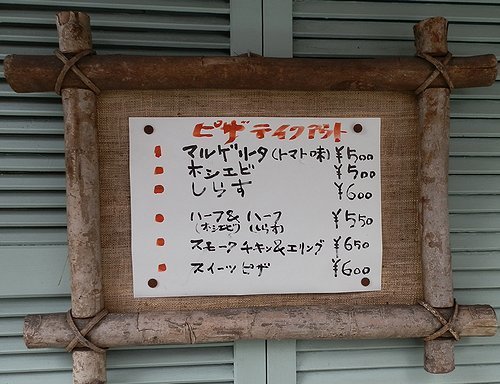 ピザ テイクアウト
マルゲリータ(トマト味) ¥500
ホシエビ ¥500
しらす ¥600
ハーフ& ハーフ ¥550
(ホシエビ) (しらす)
スモークチキン&エリング ¥650
スイーツピザ ¥600